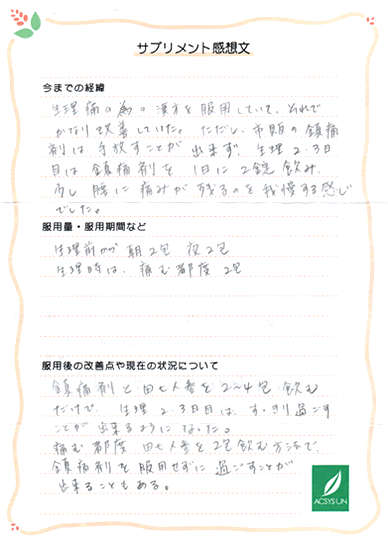 サプリメント感想文
今までの経緯
生理痛の為の漢方を服用していて、それで
かなり改善していた。ただし、市販の鎮痛
剤は手放すことが出来ず、生理2、3日
目は鎮痛剤を1日に2錠飲み、
少し腰に痛みが残るのを我慢する感じ
でした。
服用量・服用期間など
生理前から朝2包 夜2包
生理時は、痛む都度2包
服用後の改善点や現在の状況について
鎮痛剤と田七人参を2~4包飲む
だけで、生理2、3日目は、すっきり過ごす
ことが出来るようになった。
痛む都度 田七人参を2包飲む方法で、
鎮痛剤を服用せずに過ごすことが
出来ることもある。
ACSYS UN